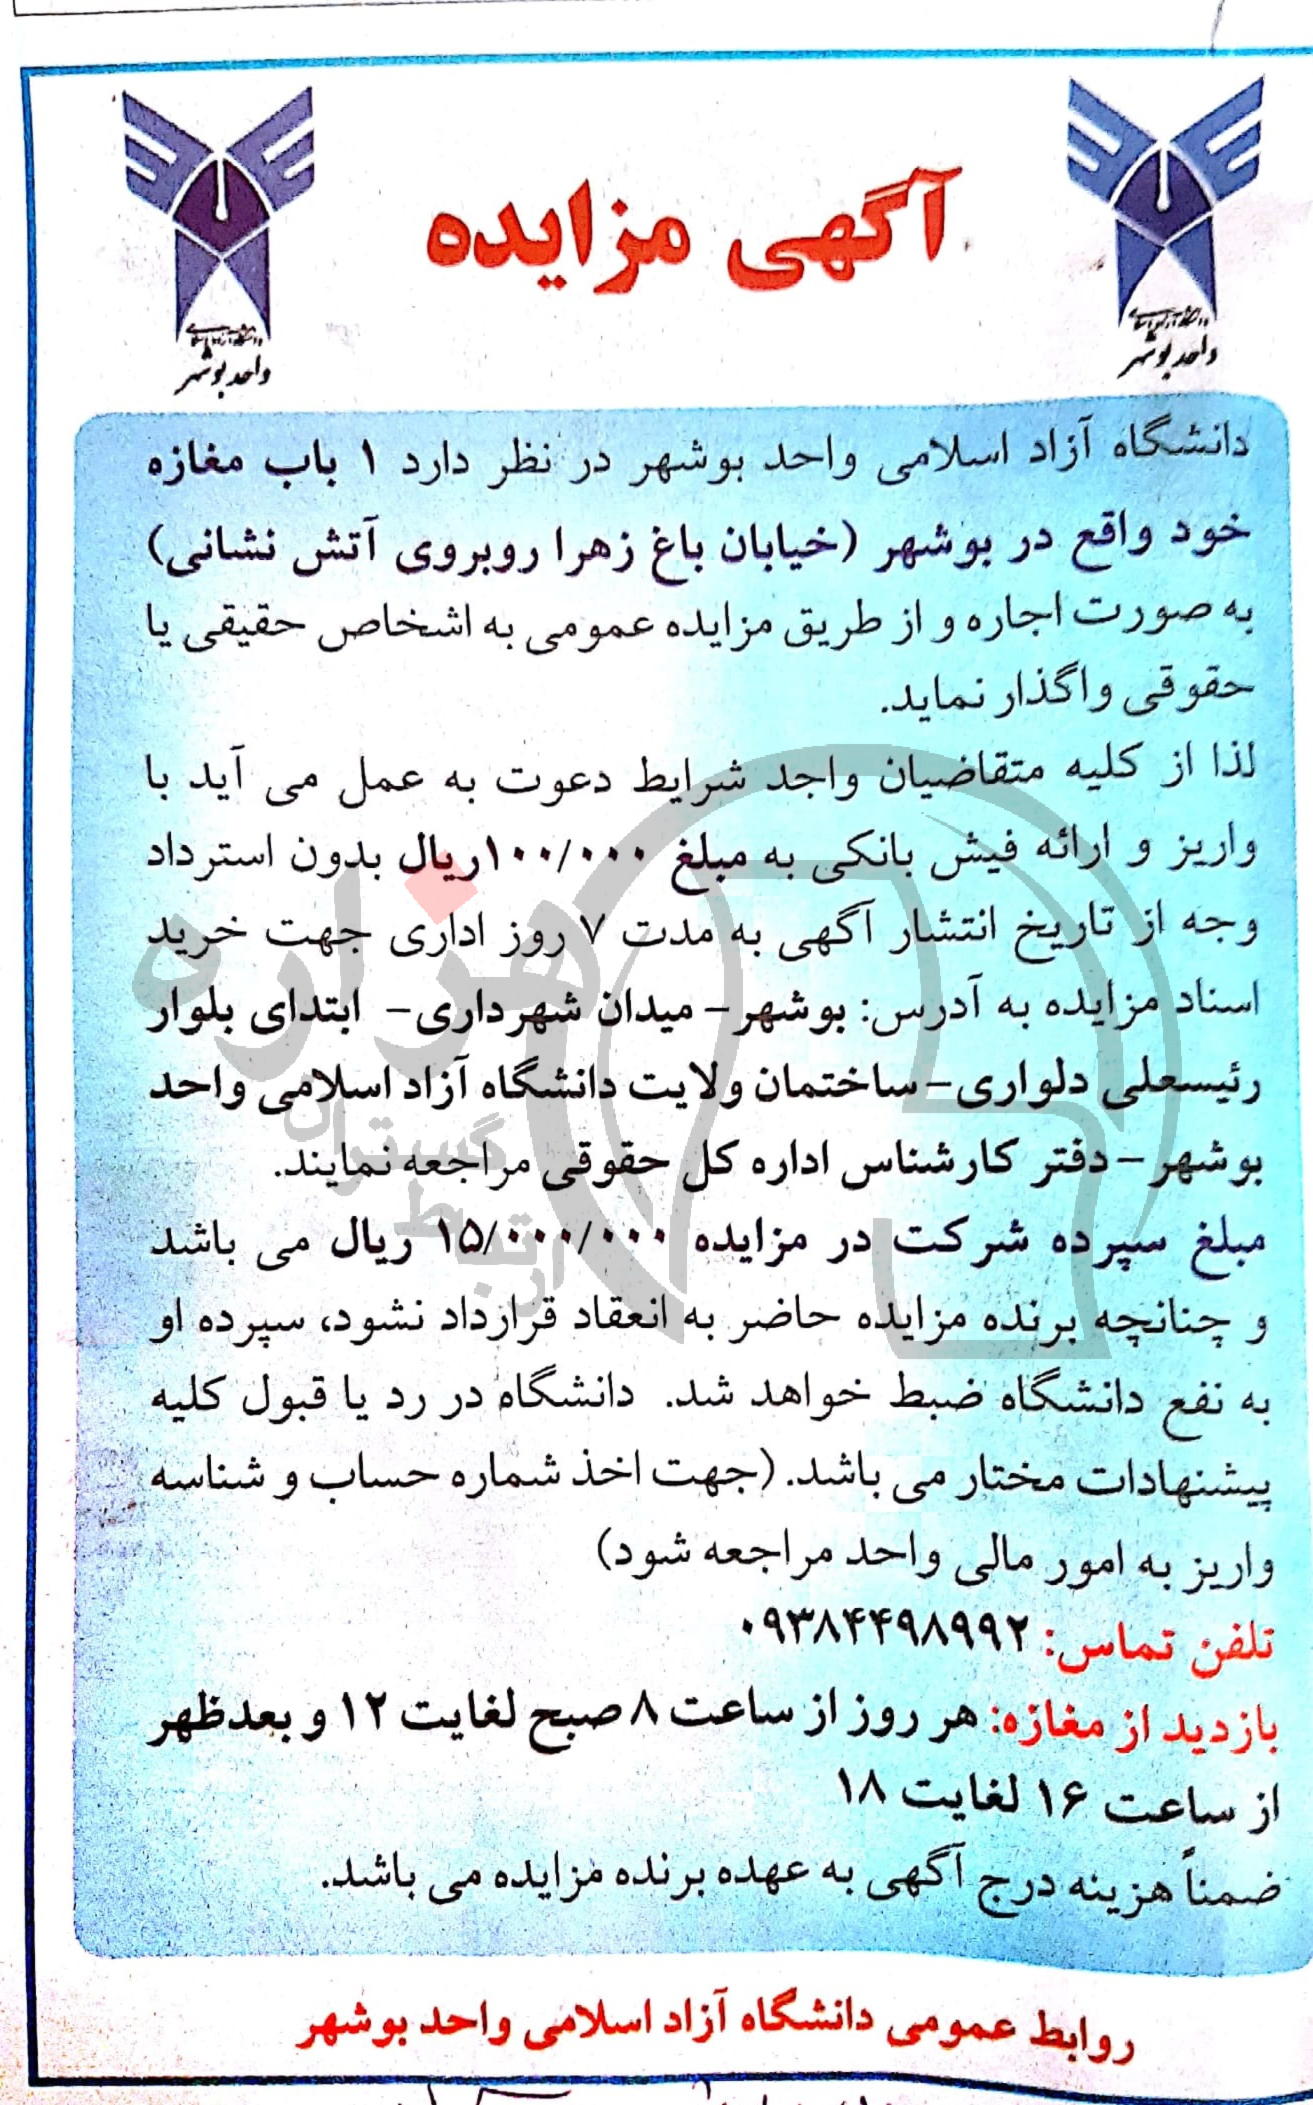 آگهی مزایده
دانشگاه آزاد اسلامی
واحد بوشهر
دانشگاه آزاد اسلامی
واحد بوشهر
دانشگاه آزاد اسلامی واحد بوشهر در نظر دارد ۱ باب مغازه
خود واقع در بوشهر (خیابان باغ زهرا روبروی آتش نشانی)
به صورت اجاره و از طریق مزایده عمومی به اشخاص حقیقی یا
حقوقی واگذار نماید.
لذا از کلیه متقاضیان واجد شرایط دعوت به عمل می آید با
واریز و ارائه فیش بانکی به مبلغ ۱۰۰/۰۰۰ریال بدون استرداد
وجه از تاریخ انتشار آگهی به مدت ۷ روز اداری جهت خرید
اسناد مزایده به آدرس: بوشهر- میدان شهرداری- ابتدای بلوار
رئیسعلی دلواری-ساختمان ولایت دانشگاه آزاد اسلامی واحد
بوشهر -دفتر کارشناس اداره کل حقوقی مراجعه نمایند.
مبلغ سپرده شرکت در مزایده ۱۵/۰۰۰/۰۰۰ ریال می باشد
و چنانچه برنده مزایده حاضر به انعقاد قرارداد نشود، سپرده او
به نفع دانشگاه ضبط خواهد شد. دانشگاه در رد یا قبول کلیه
پیشنهادات مختار می باشد. (جهت اخذ شماره حساب و شناسه
واریز به امور مالی واحد مراجعه شود)
تلفن تماس: ۰۹۳۸۴۴۹۸۹۹۲
بازدید از مغازه: هر روز از ساعت ۸ صبح لغایت ۱۲ و بعدظهر
از ساعت ۱۶ لغایت ۱۸
ضمناً هزینه درج آگهی به عهده برنده مزایده می باشد.
روابط عمومی دانشگاه آزاد اسلامی واحد بوشهر
هزاره
گسترش
ارتباط